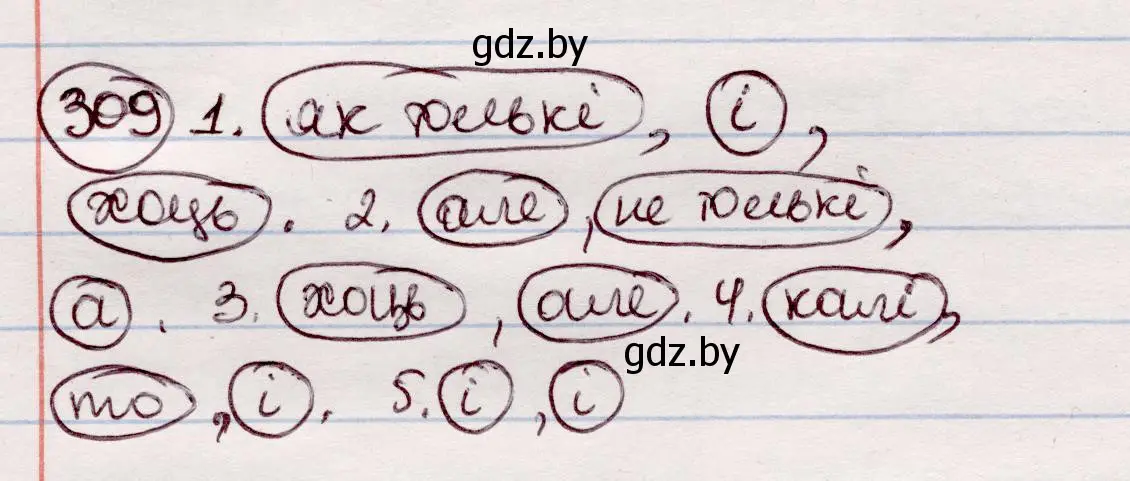 gdz.by
309 1. як толькі, і,
хоць. 2. але, не толькі,
а. 3. хоць, але. 4. калі,
то, і. 5. і, і
gdz.by